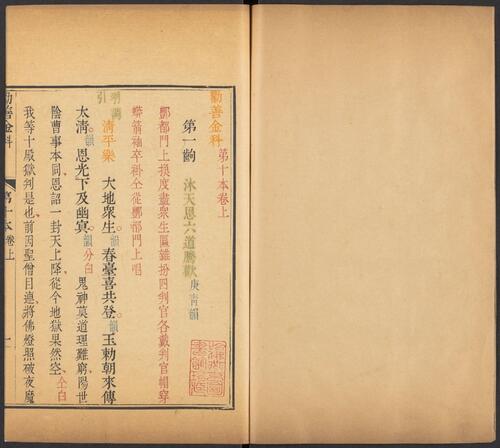 勸善金科
第十本卷上
第一齣
沐天恩六道騰歡
庚青韻
酆都門上換度盡衆生匾雜扮四判官各戴判官帽穿
蟒箭袖卒褂仝從酆都門上唱
引
清平樂
大地衆生
韻
春臺喜共登
韻
玉勅朝來傳
太清
韻
恩光下及幽冥
韻
分白
鬼神莫道理難窮陽世
陰曹事本同恩詔一封天上降從今地獄果然空
仝白
我等十殿獄判是也前因聖僧目連將佛燈照破夜魔
勸善金科
第十本卷上
一